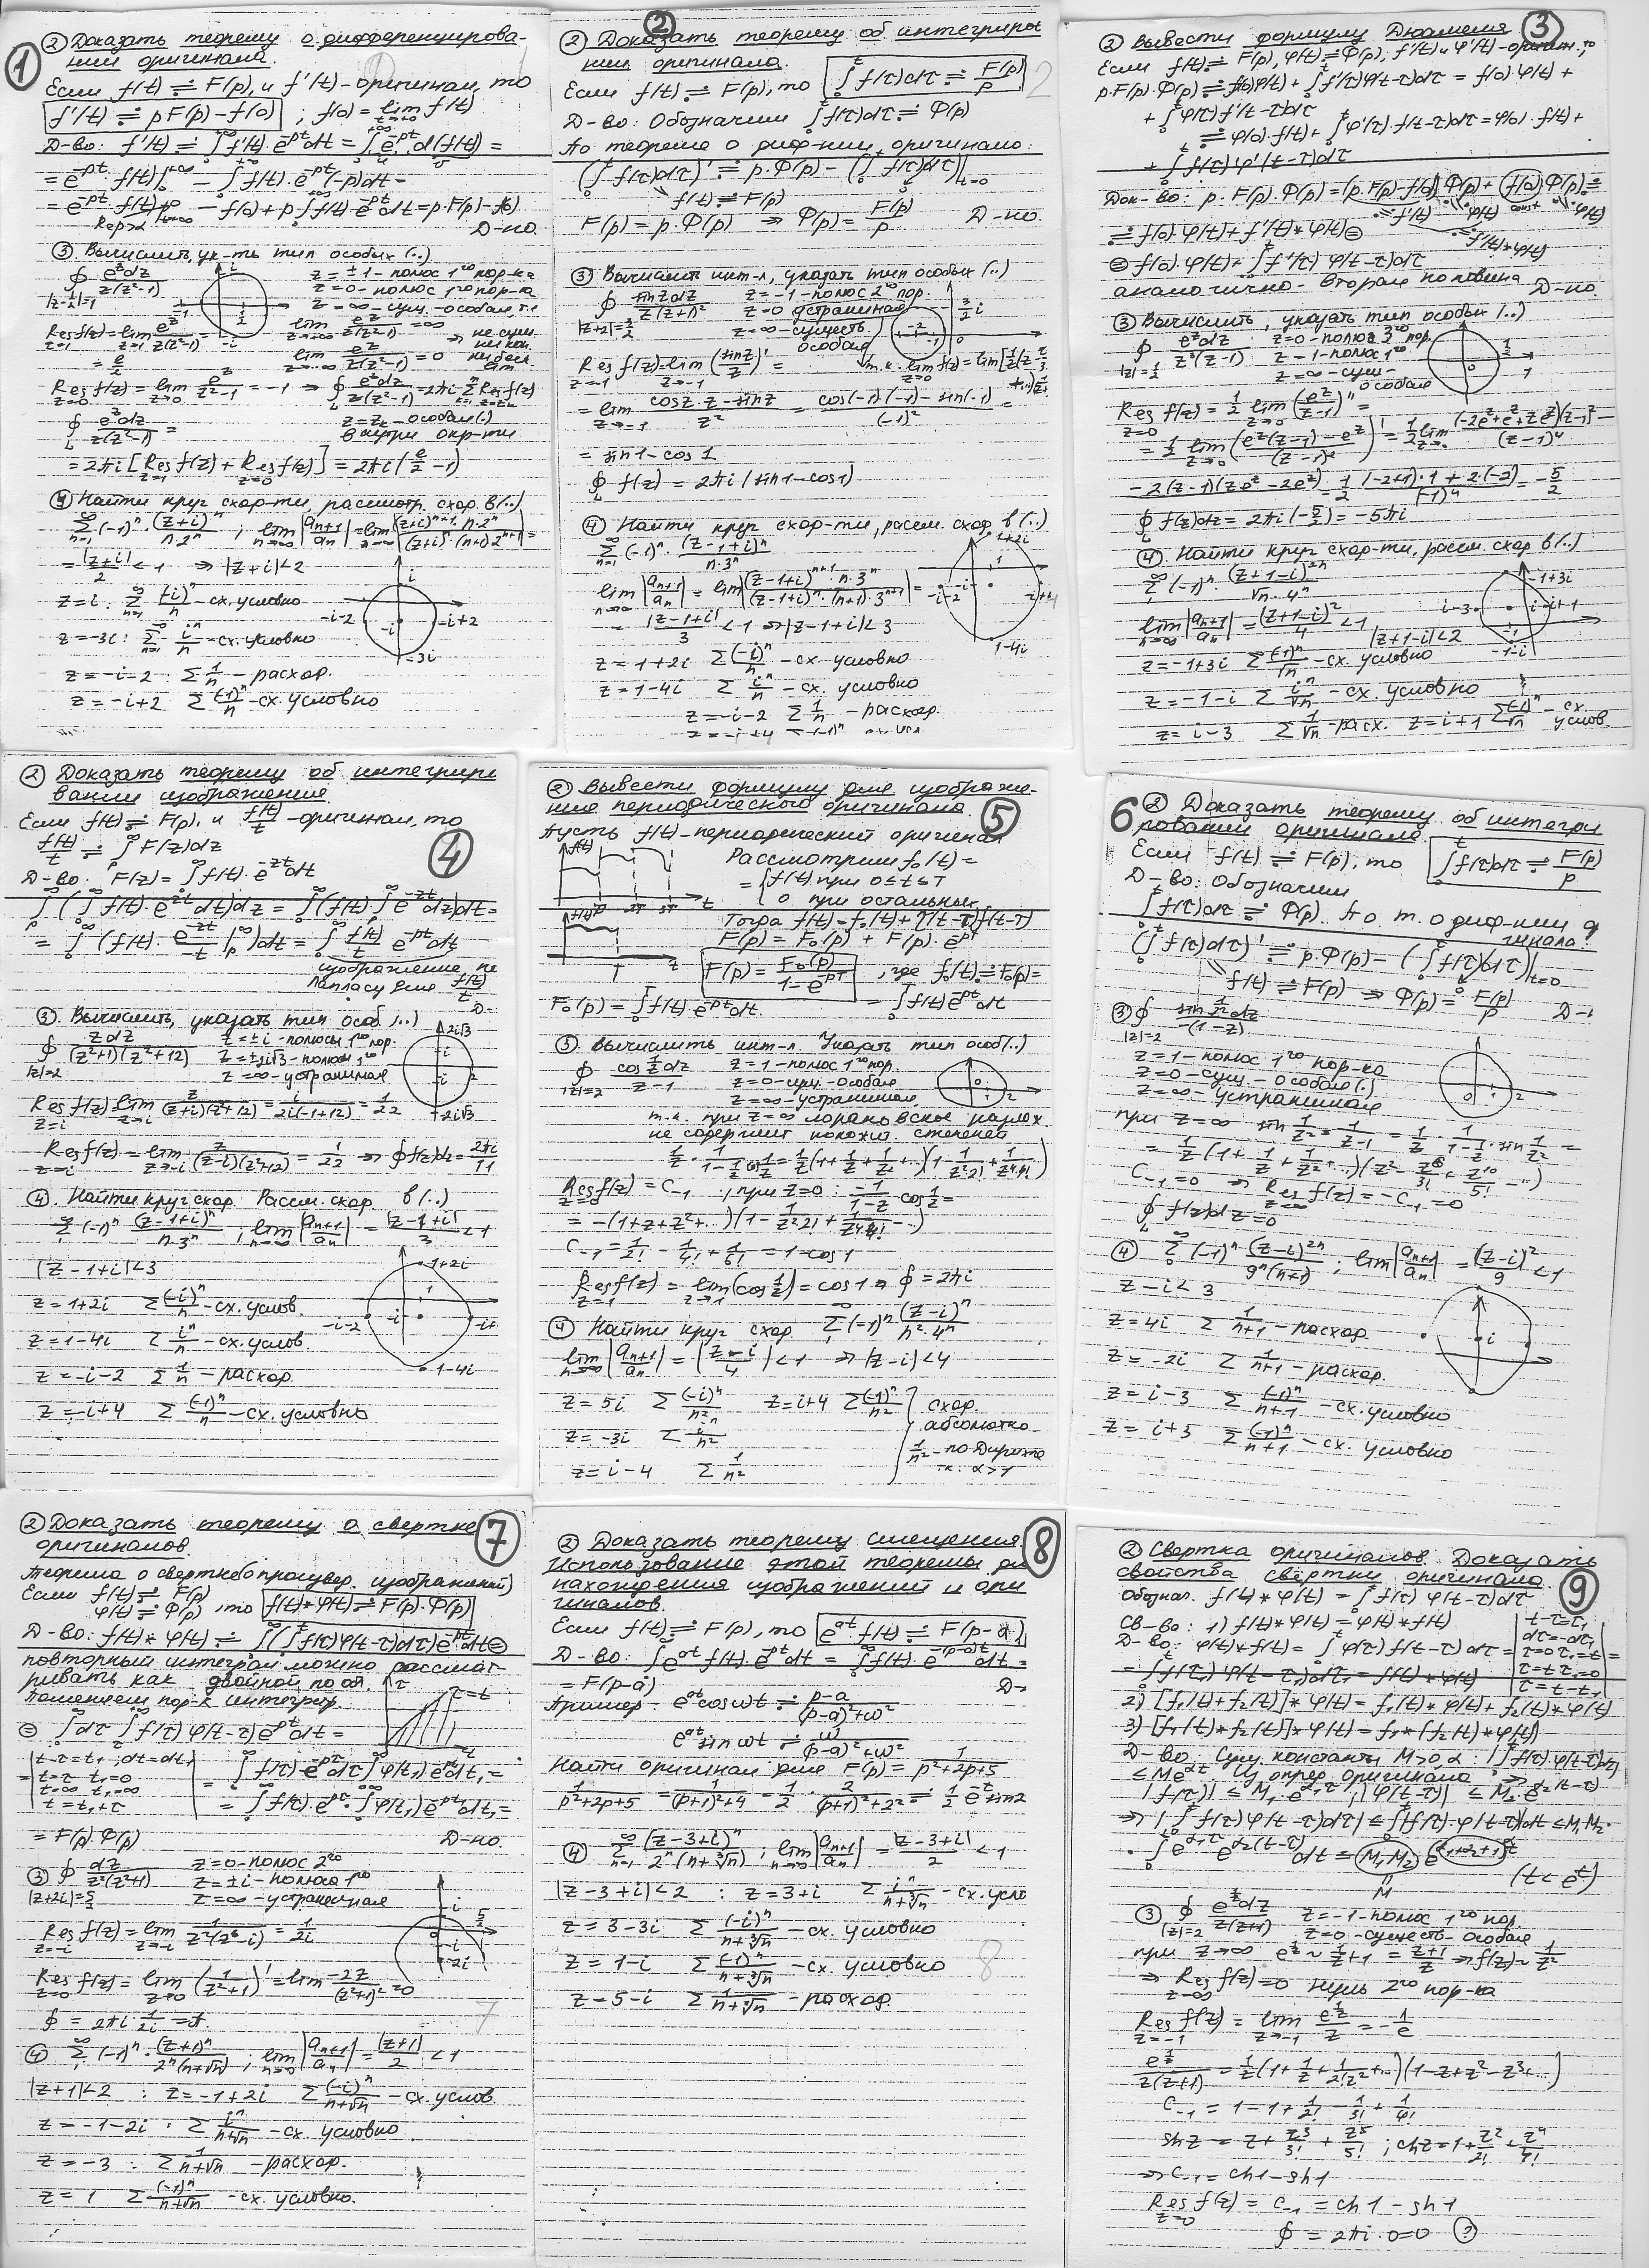 1
② Доказать теорему о дифференцирова-
нии оригинала.
Если f(t) ≓ F(p), и f'(t) - оригинал, то
f'(t) ≓ pF(p) - f(0) ; f(0) = lim f(t)
t→+0
Д-во: f'(t) ≓ ∫f'(t)·e^-pt dt = ∫e^-pt d(f(t)) =
= e^-pt · f(t)|₀^+∞ - ∫f(t)·e^-pt(-p)dt =
- f(0) + p∫f(t)·e^-pt dt = p·F(p) - f(0)
Rep>α Д-но.
③ Вычислить, ук-ть тип особых (..)
∮ e^z dz / z(z²-1) z = ±1 - полюс 1го пор-ка
z=0 - полюс 1го пор-ка
z=∞ - сущ. - особая т.к.
Res f(z) = lim e^z / z(z²-1) = e/2
z=1 z→1
Res f(z) = lim e^z / z²-1 = -1 ⇒ ∮ e^z dz / z(z²-1) = 2πi Σ Res f(z)
z=0 z→0
∮ e^z dz / z(z²-1) = z=z_k - особая (.)
внутри окр-ти
= 2πi [Res f(z) + Res f(z)] = 2πi (e/2 - 1)
z=1 z=0
④ Найти круг сход-ти, рассмотр. сход. в (..)
Σ (-1)^n · (z+i)^n / n·2^n ; lim |a_n+1 / a_n| = lim |(z+i)^n+1 · n·2^n / (z+i)^n · (n+1)·2^n+1| =
= |z+i| / 2 < 1 ⇒ |z+i| < 2
z = i : Σ (-i)^n / n - сх. условно
z = -3i : Σ i^n / n - сх. условно
z = -i-2 : Σ 1/n - расход.
z = -i+2 Σ (-1)^n / n - сх. условно
2
② Доказать теорему об интегриро
нии оригинала.
Если f(t) ≓ F(p), то ∫f(τ)dτ ≓ F(p)/p
Д-во: Обозначим ∫f(τ)dτ ≓ Φ(p)
По теореме о диф-нии оригинала:
(∫f(τ)dτ)' ≓ p·Φ(p) - (∫f(τ)dτ)|t=0
f(t) ≓ F(p)
F(p) = p·Φ(p) ⇒ Φ(p) = F(p)/p Д-но.
③ Вычислить инт-л, указать тип особых (..)
∮ sin z dz / z(z+1)² z=-1 - полюс 2го пор.
z=0 устранимая
z=∞ - существ
особая
Res f(z) = lim (sin z / z)' =
z=-1 z→-1
= lim cos z · z - sin z / z² = cos(-1)·(-1) - sin(-1) / (-1)² =
z→-1
= sin 1 - cos 1
∮ f(z) = 2πi (sin 1 - cos 1)
④ Найти круг сход-ти, рассм. сход в (..)
Σ (-1)^n · (z-1+i)^n / n·3^n
lim |a_n+1 / a_n| = lim |(z-1+i)^n+1 · n·3^n / (z-1+i)^n · (n+1)·3^n+1| =
= |z-1+i| / 3 < 1 ⇒ |z-1+i| < 3
z = 1+2i Σ (-i)^n / n - сх. условно
z = 1-4i Σ i^n / n - сх. условно
z = -i-2 Σ 1/n - расход.
z = -i+4
3
② Вывести формулу Дюамеля
Если f(t) ≓ F(p), φ(t) ≓ Φ(p), f'(t) и φ'(t) - ориг., то
p·F(p)·Φ(p) ≓ f(0)φ(t) + ∫f'(τ)φ(t-τ)dτ = f(0)·φ(t) +
+ ∫φ(τ)f'(t-τ)dτ
≓ φ(0)·f(t) + ∫φ'(τ)·f(t-τ)dτ = φ(0)·f(t) +
+ ∫f(τ)φ'(t-τ)dτ
Док-во: p·F(p)·Φ(p) = (p·F(p) - f(0))·Φ(p) + f(0)·Φ(p) ≓
≓ f'(t) φ(t) const φ(t)
f'(t)*φ(t)
≓ f(0)·φ(t) + f'(t)*φ(t) =
= f(0)·φ(t) + ∫f'(τ)·φ(t-τ)dτ
аналогично - вторая половина Д-но.
③ Вычислить, указать тип особых (..)
∮ e^z dz / z³(z-1) z=0 - полюс 3го пор.
z=1 - полюс 1го
z=∞ - сущ.-
особая
Res f(z) = 1/2 lim (e^z / z-1)'' =
z=0 z→0
= 1/2 lim (e^z(z-1) - e^z / (z-1)²)' = 1/2 lim (-2e^z+e^z+ze^z)(z-1)² -
- 2(z-1)(ze^z-2e^z) = 1/2 (-2+1)·1+2·(-2) / (-1)⁴ = -5/2
∮ f(z)dz = 2πi(-5/2) = -5πi
④ Найти круг сход-ти, рассм. сход в (..)
Σ (-1)^n · (z+1-i)^2n / √n·4^n
lim |a_n+1 / a_n| = (z+1-i)² / 4 < 1
|z+1-i| < 2
z = -1+3i Σ (-1)^n / √n - сх. условно
z = -1-i Σ i^n / √n - сх. условно
z = i-3 Σ 1/√n - расх. z = i+1 Σ (-1)^n / √n - сх. услов.
4
② Доказать теорему об интегрир
вании изображения
Если f(t) ≓ F(p), и f(t)/t - оригинал, то
f(t)/t ≓ ∫F(z)dz
Д-во: F(z) = ∫f(t)·e^-zt dt
∫(∫f(t)·e^-zt dt)dz = ∫(f(t)∫e^-zt dz)dt =
= ∫(f(t)·e^-zt / -t |p)dt = ∫f(t)/t e^-pt dt
изображение по
Лапласу для f(t)/t
③. Вычислить, указать тип особ (..)
∮ z dz / (z²+1)(z²+12) z=±i - полюсы 1го пор.
|z|=2 z=±2i√3 - полюсы 1го
z=∞ - устранимая
Res f(z) = lim z / (z+i)(z²+12) = i / 2i(-1+12) = 1/22
z=i z→i
Res f(z) = lim z / (z-i)(z²+12) = 1/22 ⇒ ∮f(z)dz = 2πi/11
z=-i z→-i
④. Найти круг сход. Рассм. сход в (..)
Σ (-1)^n (z-1+i)^n / n·3^n ; lim |a_n+1 / a_n| = |z-1+i| / 3 < 1
|z-1+i| < 3
z = 1+2i Σ (-i)^n / n - сх. услов.
z = 1-4i Σ i^n / n - сх. услов.
z = -i-2 Σ 1/n - расход.
z = -i+4 Σ (-1)^n / n - сх. условно
5
② Вывести формулу для изображе-
ния периодического оригинала.
Пусть f(t) - периодический оригинал
Рассмотрим f₀(t) =
= { f(t) при 0≤t≤T
0 при остальных
Тогда f(t) = f₀(t) + η(t-T)f(t-T)
F(p) = F₀(p) + F(p)·e^-pT
F(p) = F₀(p) / 1-e^-pT , где f₀(t) ≓ F₀(p) =
F₀(p) = ∫f(t)e^-pt dt = ∫f(t)e^-pt dt
③. Вычислить инт-л. Указать тип особ (..)
∮ cos 1/z dz / z-1 z=1 - полюс 1го пор.
|z|=2 z=0 - сущ. - особая
z=∞ - устранимая
т.к. при z=∞ лорановское разлож.
не содержит полож. степеней
1/z · 1/(1-1/z) cos 1/z = 1/z (1+1/z+1/z²+..)(1-1/z²2!+1/z⁴4!)
Res f(z) = C₋₁ ; при z=0 : -1/1-z cos 1/z =
z=0
= -(1+z+z²+..)(1-1/z²2!+1/z⁴4!-..)
C₋₁ = 1/2! - 1/4! + 1/6! = 1-cos 1
Res f(z) = lim (cos 1/z) = cos 1 ⇒ ∮ = 2πi
z=1 z→1
④ Найти круг сход. Σ (-1)^n (z-i)^n / n²·4^n
lim |a_n+1 / a_n| = |z-i / 4| < 1 ⇒ |z-i| < 4
z = 5i Σ (-i)^n / n² z = i+4 Σ (-1)^n / n² } сход.
абсолютно
z = -3i Σ i^n / n² 1/n² - по Дирихле
z = i-4 Σ 1/n² т.к. α>1
6
② Доказать теорему об интегри
ровании оригинала
Если f(t) ≓ F(p), то ∫f(τ)dτ ≓ F(p)/p
Д-во: Обозначим
∫f(τ)dτ ≓ Φ(p). По т. о диф-нии
(∫f(τ)dτ)' ≓ p·Φ(p) - (∫f(τ)dτ)|t=0
f(t) ≓ F(p) ⇒ Φ(p) = F(p)/p
③ ∮ sin 1/z² dz / (1-z)
|z|=2
z=1 - полюс 1го пор-ка
z=0 - сущ. - особая (.)
z=∞ - устранимая
при z=∞ sin 1/z² · 1/z-1 = 1/z · 1/(1-1/z) · sin 1/z² =
C₋₁ = 0 ⇒ Res f(z) = -C₋₁ = 0
z=∞
∮ f(z)dz = 0
④ Σ (-1)^n (z-i)^2n / 9^n(n+1) ; lim |a_n+1 / a_n| = (z-i)² / 9 < 1
z-i < 3
z = 4i Σ 1/n+1 - расход.
z = -2i Σ 1/n+1 - расход.
z = i-3 Σ (-1)^n / n+1 - сх. условно
z = i+3 Σ (-1)^n / n+1 - сх. условно
7
② Доказать теорему о свертке
оригиналов.
Теорема о свертке (о произвед. изображений)
Если f(t) ≓ F(p)
φ(t) ≓ Φ(p) , то f(t)*φ(t) ≓ F(p)·Φ(p)
Д-во: f(t)*φ(t) ≓ ∫(∫f(τ)φ(t-τ)dτ)e^-pt dt =
повторный интеграл можно рассмат-
ривать как двойной по обл.
Поменяем пор-к интегрир.
= ∫dτ∫f(τ)φ(t-τ)e^-pt dt =
= | t-τ=t₁; dt=dt₁
t=τ t₁=0
t=∞ t₁=∞
t=t₁+τ | = ∫f(τ)·e^-pτ dτ∫φ(t₁)e^-pt₁ dt₁ =
= ∫f(τ)·e^-pτ·∫φ(t₁)e^-pt₁ dt₁ =
= F(p)·Φ(p) Д-но.
③ ∮ dz / z²(z²+1) z=0 - полюс 2го
|z+2i|=5/2 z=±i - полюса 1го
z=∞ - устранимая
Res f(z) = lim 1 / z²(z-i) = 1/2i
z=-i z→-i
Res f(z) = lim (1/z²+1)' = lim -2z / (z²+1)² = 0
z=0 z→0
∮ = 2πi · 1/2i = π.
④ Σ (-1)^n · (z+1)^n / 2^n(n+√n) ; lim |a_n+1 / a_n| = |z+1| / 2 < 1
|z+1| < 2 : z = -1+2i Σ (-i)^n / n+√n - сх. услов.
z = -1-2i : Σ i^n / n+√n - сх. условно
z = -3 : Σ 1/n+√n - расход.
z = 1 Σ (-1)^n / n+√n - сх. условно.
7
8
② Доказать теорему смещения.
Использование этой теоремы дл
нахождения изображений и ори
гиналов.
Если f(t) ≓ F(p), то e^at f(t) ≓ F(p-a)
Д-во: ∫e^at f(t)·e^-pt dt = ∫f(t)·e^-(p-a)t dt =
= F(p-a)
Пример. e^at cos ωt ≓ p-a / (p-a)²+ω²
e^at sin ωt ≓ ω / (p-a)²+ω²
Найти оригинал для F(p) = 1 / p²+2p+5
1 / p²+2p+5 = 1 / (p+1)²+4 = 1/2 · 2 / (p+1)²+2² ≓ 1/2 e^-t sin2
④ Σ (z-3+i)^n / 2^n(n+∛n) ; lim |a_n+1 / a_n| = |z-3+i| / 2 < 1
|z-3+i| < 2 : z = 3+i Σ i^n / n+∛n - сх. усло
z = 3-3i Σ (-i)^n / n+∛n - сх. условно
z = 1-i Σ (-1)^n / n+∛n - сх. условно
z = 5-i Σ 1/n+∛n - расход.
8
9
② Свертка оригиналов. Доказать
свойства свёртки оригинала.
Обознач. f(t)*φ(t) = ∫f(τ)φ(t-τ)dτ
Св-во: 1) f(t)*φ(t) = φ(t)*f(t)
Д-во: φ(t)*f(t) = ∫φ(τ)f(t-τ)dτ = | t-τ=τ₁
dτ=-dτ₁
τ=0 τ₁=t
τ=t τ₁=0
τ=t-τ₁ | =
= ∫f(τ₁)φ(t-τ₁)dτ₁ = f(t)*φ(t)
2) [f₁(t)+f₂(t)]*φ(t) = f₁(t)*φ(t)+f₂(t)*φ(t)
3) [f₁(t)*f₂(t)]*φ(t) = f₁*(f₂(t)*φ(t))
Д-во: Сущ. константы M>0, α : |∫f(τ)·φ(t-τ)dτ|
≤ Me^αt. Из опред. оригинала ⇒
|f(τ)| ≤ M₁e^α₁τ, |φ(t-τ)| ≤ M₂·e^α₂(t-τ)
⇒ |∫f(τ)φ(t-τ)dτ| ≤ ∫|f(τ)·φ(t-τ)|dτ ≤ M₁M₂·
·∫e^α₁τ e^α₂(t-τ) dτ ≤ M₁M₂ e^(α₁+α₂+1)t
M (t<e^t)
③ ∮ e^1/z dz / z(z+1) z=-1 - полюс 1го пор.
|z|=2 z=0 - существ. особая
при z→∞ e^1/z ~ 1/z+1 = z+1/z ⇒ f(z) ~ 1/z²
⇒ Res f(z) = 0 нуль 2го пор-ка
z=∞
Res f(z) = lim e^1/z / z = -1/e
z=-1 z→-1
e^1/z / z(z+1) = 1/z (1+1/z+1/2!z²+..)(1-z+z²-z³+..)
C₋₁ = 1-1+1/2!-1/3!+1/4!
sh z = z+z³/3!+z⁵/5! ; ch z = 1+z²/2!+z⁴/4!
⇒ C₋₁ = ch1-sh1
Res f(z) = C₋₁ = ch1-sh1
z=0
∮ = 2πi·0=0 (?)